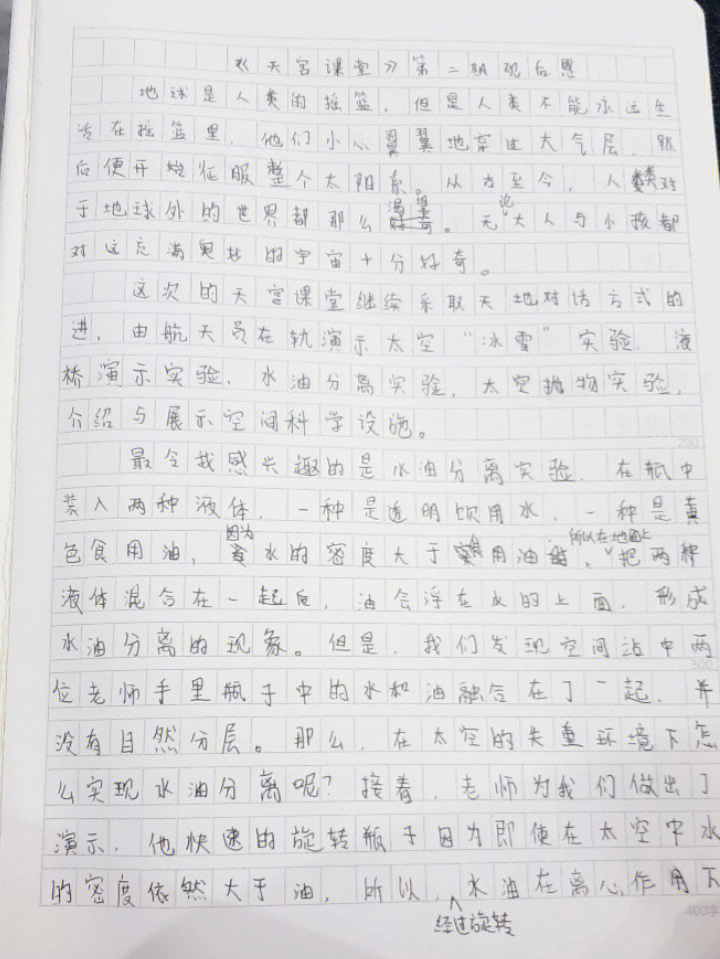 《天宫课堂》第二期观后感
地球是人类的摇篮，但是人类不能永远生
活在摇篮里，他们小心翼翼地穿过大气层，然
后便开始征服整个太阳系。从古至今，人类对
于地球外的世界都那么渴望。无论大人与小孩都
对这充满奥妙的宇宙十分好奇。
这次的天宫课堂继续采取天地对话方式的
进，由航天员在轨演示太空“冰雪”实验、液
桥演示实验、水油分离实验、太空抛物实验，
介绍与展示空间科学设施。
最令我感兴趣的是水油分离实验，在瓶中
装入两种液体，一种是透明饮用水，一种是黄
色食用油，因为水的密度大于食用油，所以在地面上把两种
液体混合在一起后，油会浮在水的上面，形成
水油分离的现象。但是，我们发现空间站中两
位老师手里瓶子中的水和油融合在了一起，并
没有自然分层。那么，在太空的失重环境下怎
么实现水油分离呢？接着，老师为我们做出了
演示，他快速的旋转瓶子因为即使在太空中水
的密度依然大于油，所以，经过旋转水油在离心作用下
200
300
400字